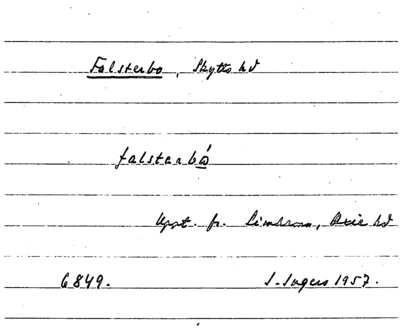 Falsterbo, Skytts hd
falstarbώ
Uppt. fr. Limhamn, Oxie hd
6849. I. Ingers 1957.